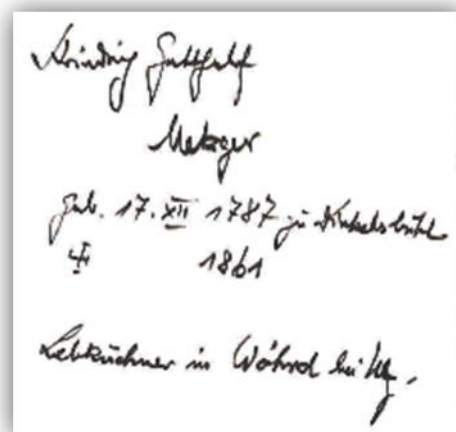 Friedrich Gottholf
Metzger
geb. 17. XII 1787 zu Dinkelsbühl
1861
Lebküchner in Wöhrd bei Nbg.